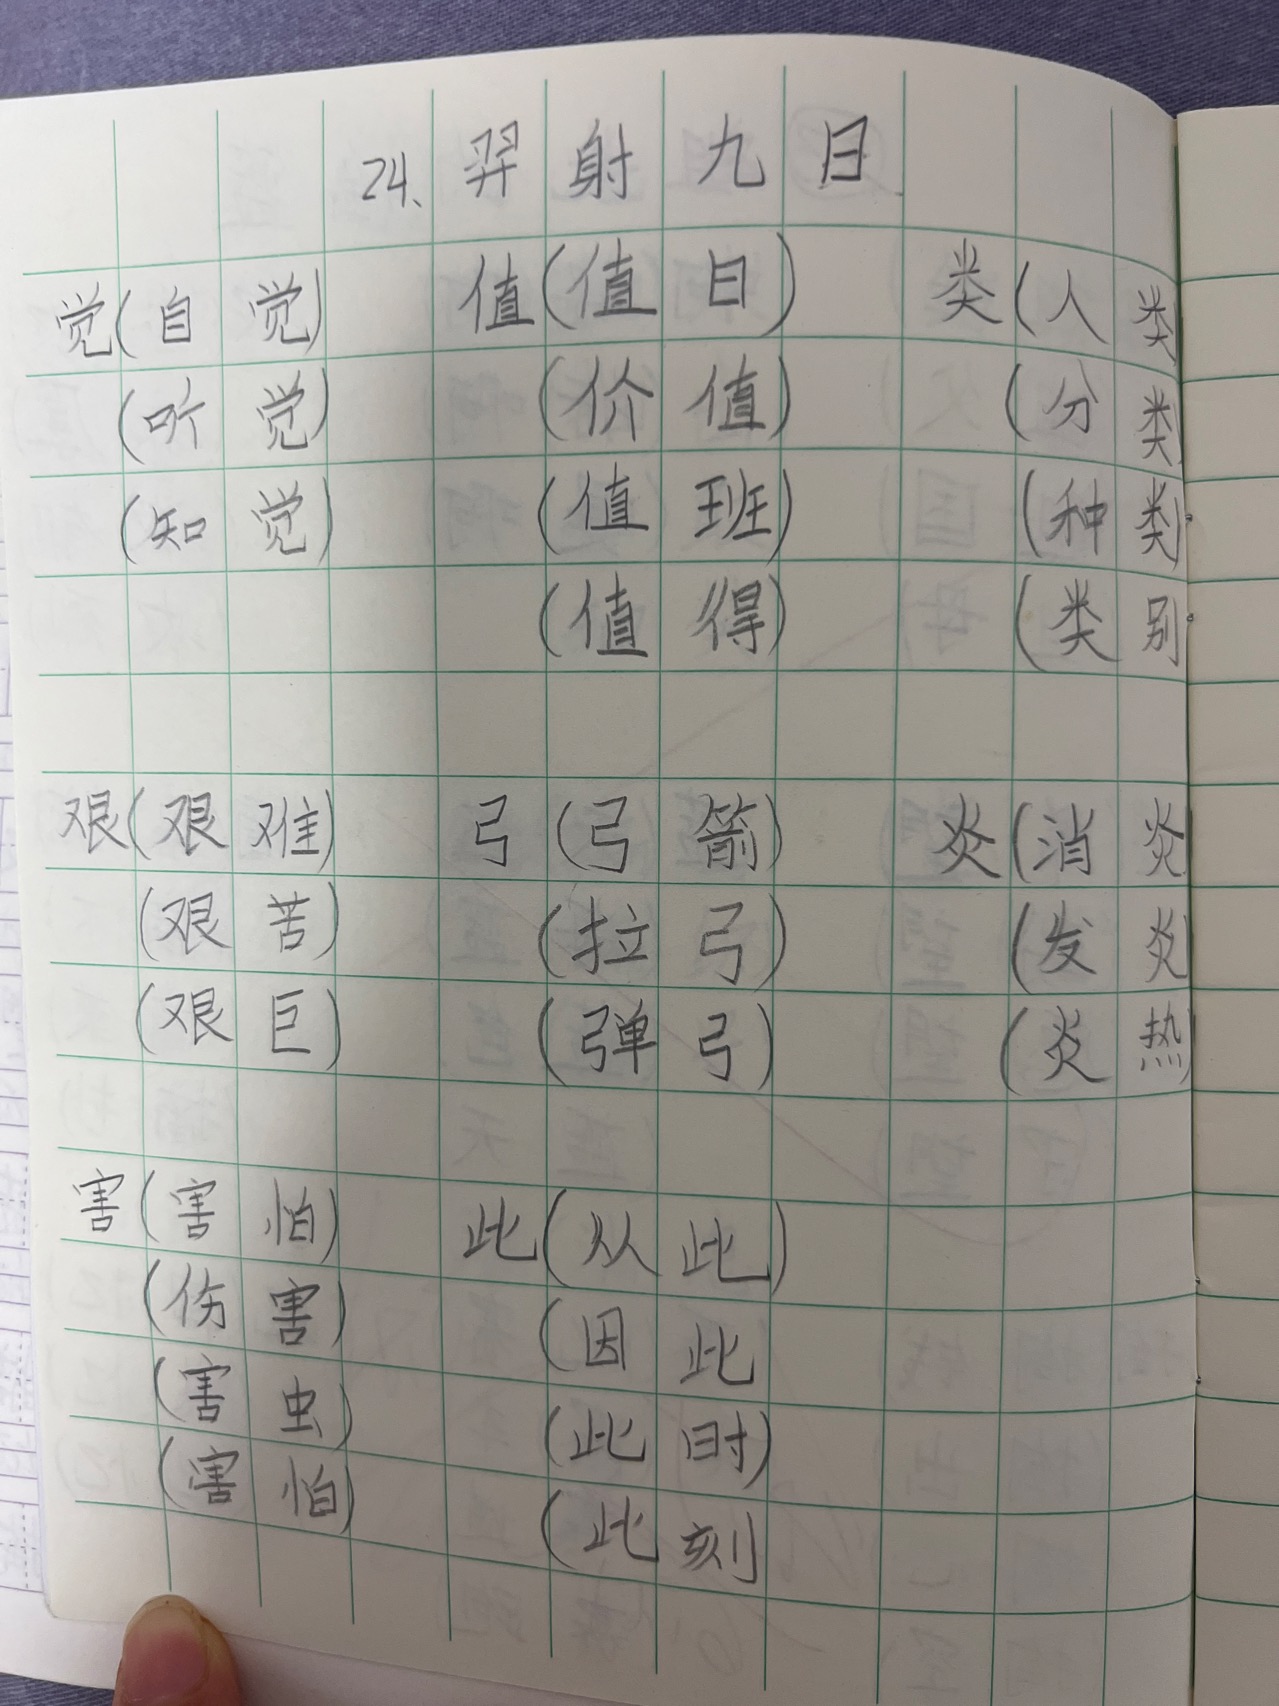 24、羿射九日
觉(自觉) 值(值日) 类(人类
(听觉) (价值) (分类)
(知觉) (值班) (种类)
(值得) (类别
艰(艰难) 弓(弓箭) 炎(消炎
(艰苦) (拉弓) (发炎
(艰巨) (弹弓) (炎热)
害(害怕) 此(从此)
(伤害) (因此
(害虫) (此时)
(害怕) (此刻